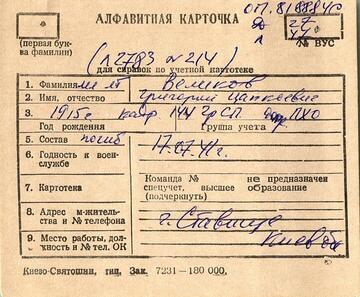 АЛФАВИТНАЯ КАРТОЧКА
оп. 818884с
(первая бук-
ва фамилии)
№ ВУС
(л 2783 № 214)
для справок по учетной картотеке
1. Фамилия мл лт Великов
2. Имя, отчество Григорий
3. 1915г. 144 ГрСП ПХО
Год рождения Группа учета
5. Состав погиб 17.07.41г.
6. Годность к воен-
службе
7. Картотека
Команда № не предназначен
спецучет, высшее образование
(подчеркнуть)
8. Адрес м-жительс-
ства и № телефона
г. Ставище
9. Место работы, дол-
жность и № тел. ОК
Киев
Киево-Святошин, тип. Зак. 7231—180 000.